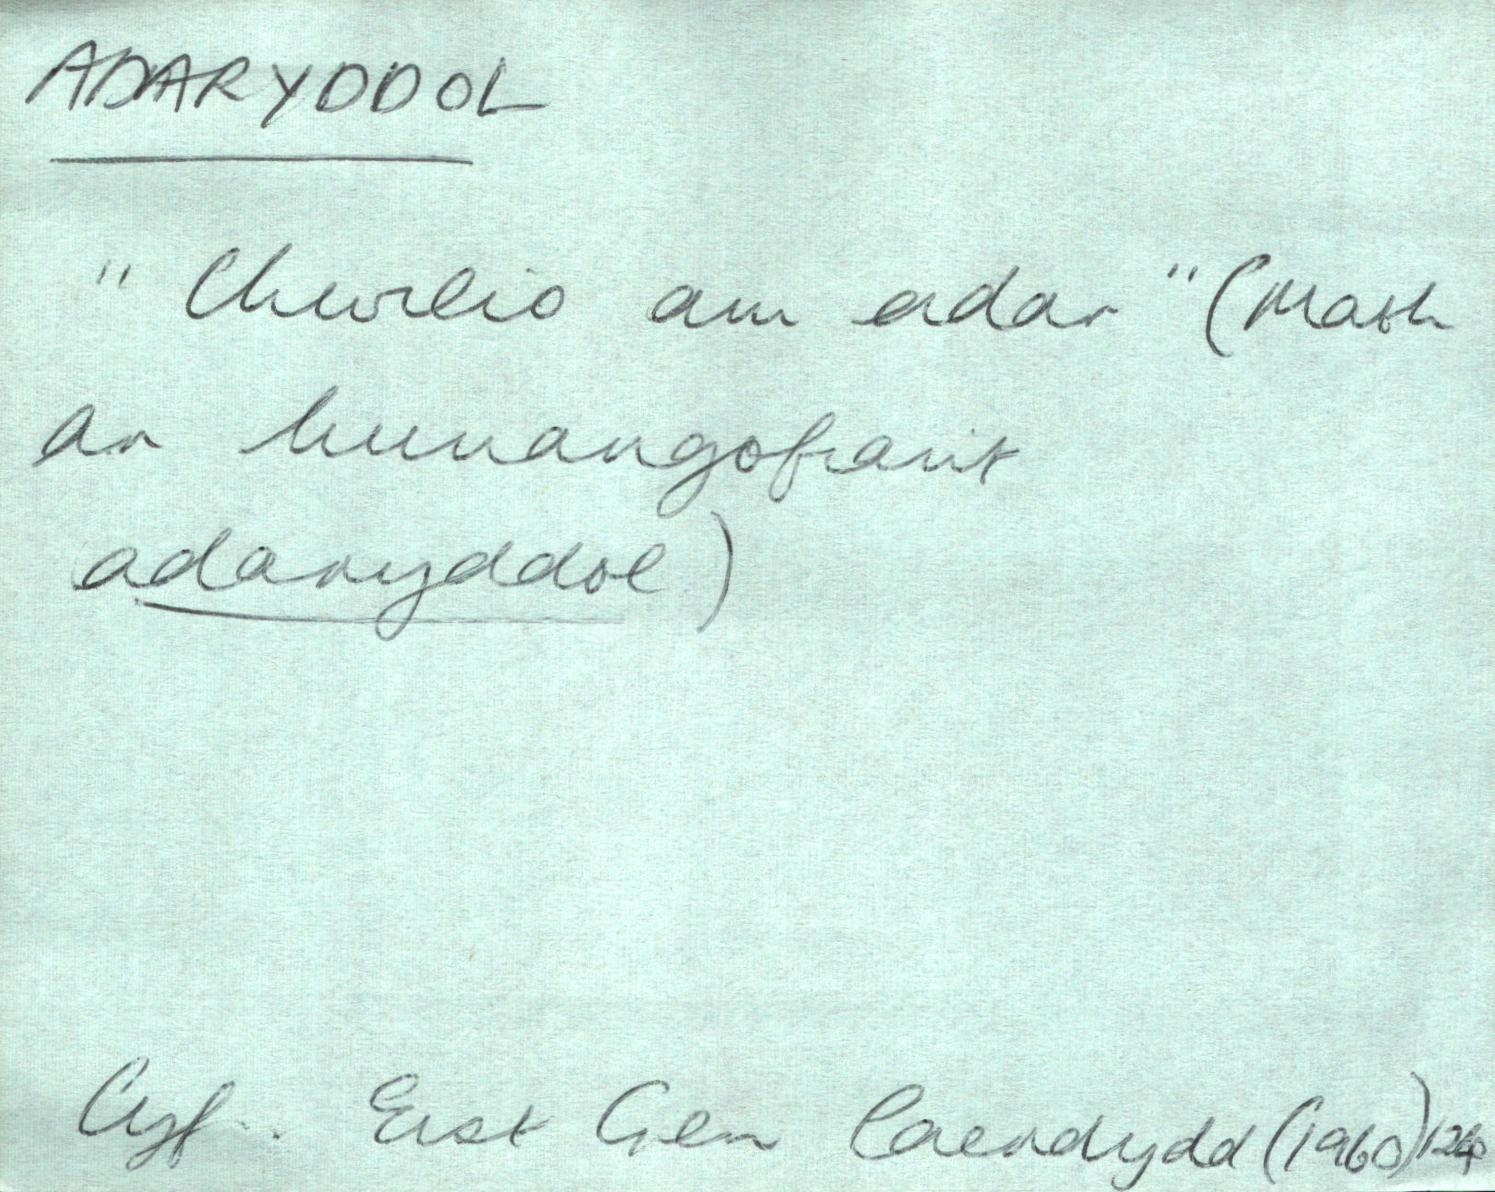 ADARYDDOL
"Chwilio am adar" (Math
ar hunangofiant
adaryddol)
Cyf. Eist Gen Caerdydd (1960) 124